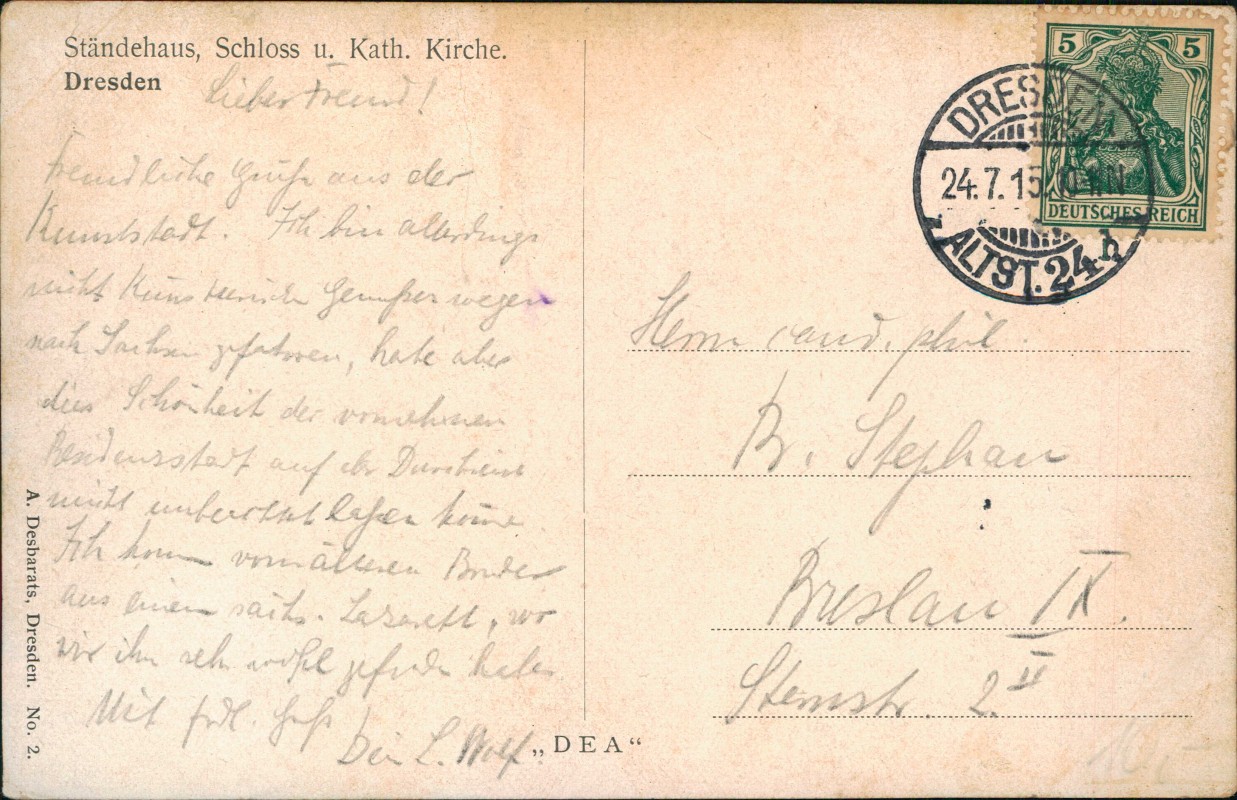 Ständehaus, Schloss u. Kath. Kirche.
Dresden
Lieber Freund!
Freundliche Grüße aus der
Kunststadt. Ich bin allerdings
nicht Genußes wegen
nach Sachsen gefahren, habe aber
die Schönheit der vornehmen
Residenzstadt auf der Durchreise
nicht lassen
Ich komme vom älteren Bruder
aus einem sächs. Lazarett, wo
wir ihn sehr wohl gefunden haben
Mit frdl. Gruß
Dein L. Wolf.
A. Desbarats, Dresden. No. 2.
„DEA“
5 5
DEUTSCHES REICH
DRESDEN
24.7.15. N
ALTST. 24 h
Herrn cand. phil.
Br. Stephan
Breslau IX.
Sternstr. 2. II
10,-